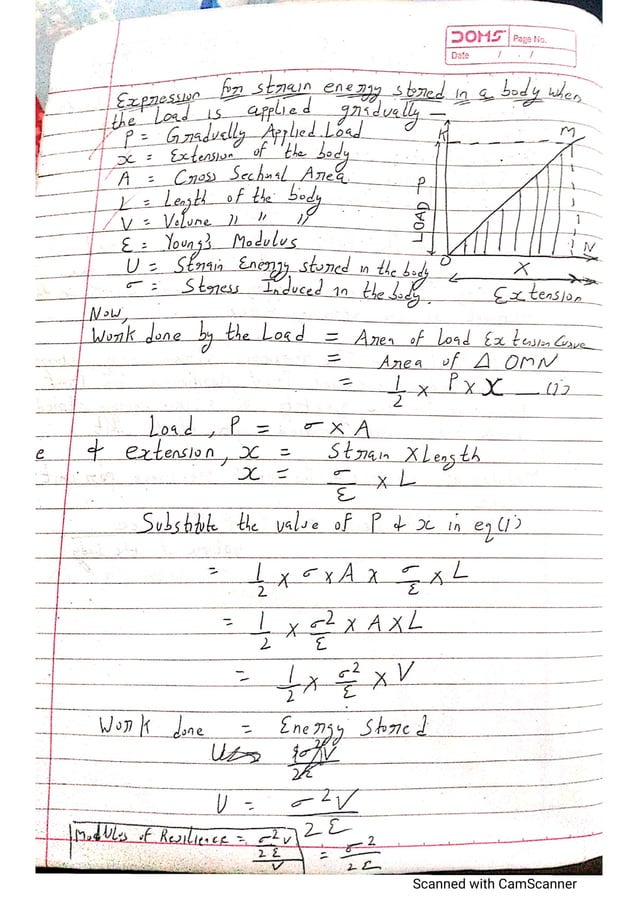 DOMS Page No.
Date / /
Expression for strain energy stored in a body when
the Load is applied gradually —
P = Gradually Applied Load
x = Extension of the body
A = Cross Sectional Area
L = Length of the body
V = Volume " " "
Ɛ = Young's Modulus
U = Strain Energy stored in the body
σ = Stress Induced in the body.
K M
LOAD P
O N
X
Extension
Now,
Work done by the Load = Area of Load Extension Curve
= Area of Δ OMN
= 1/2 × P × X — (1)
Load, P = σ × A
e & extension, x = Strain × Length
x = σ/Ɛ × L
Substitute the value of P & x in eq (1)
= 1/2 × σ × A × σ/Ɛ × L
= 1/2 × σ²/Ɛ × A × L
= 1/2 × σ²/Ɛ × V
Work done = Energy Stored
U = σ²V/2Ɛ
Modulus of Resilience = σ²V/2Ɛ/V = σ²/2Ɛ
Scanned with CamScanner